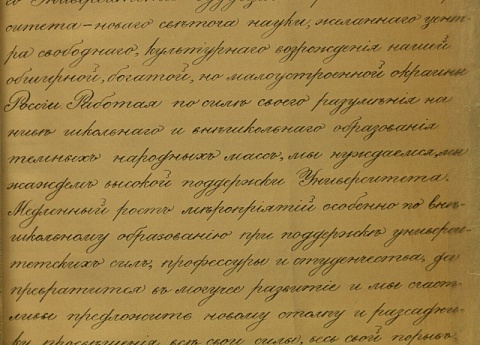 ситета – новаго свѣточа науки, желаннаго цент-
ра свободнаго, культурнаго возрожденія нашей
обширной, богатой, но малоустроенной окраины
Россіи. Работая по силѣ своего разумѣнія на
нивѣ школьнаго и внѣшкольнаго образованія
тельныхъ народныхъ массъ, мы нуждаемся, мы
жаждемъ высокой поддержки Университета.
Медленный ростъ мѣропріятій особенно по внѣ-
школьному образованію при поддержкѣ универси-
тетскихъ силъ, профессуры и студенчества, да
превратится въ могучее развитіе и мы счаст-
ливы предложить новому столпу и разсадни-
ку просвѣщенія всѣ свои силы, весь свой порывъ